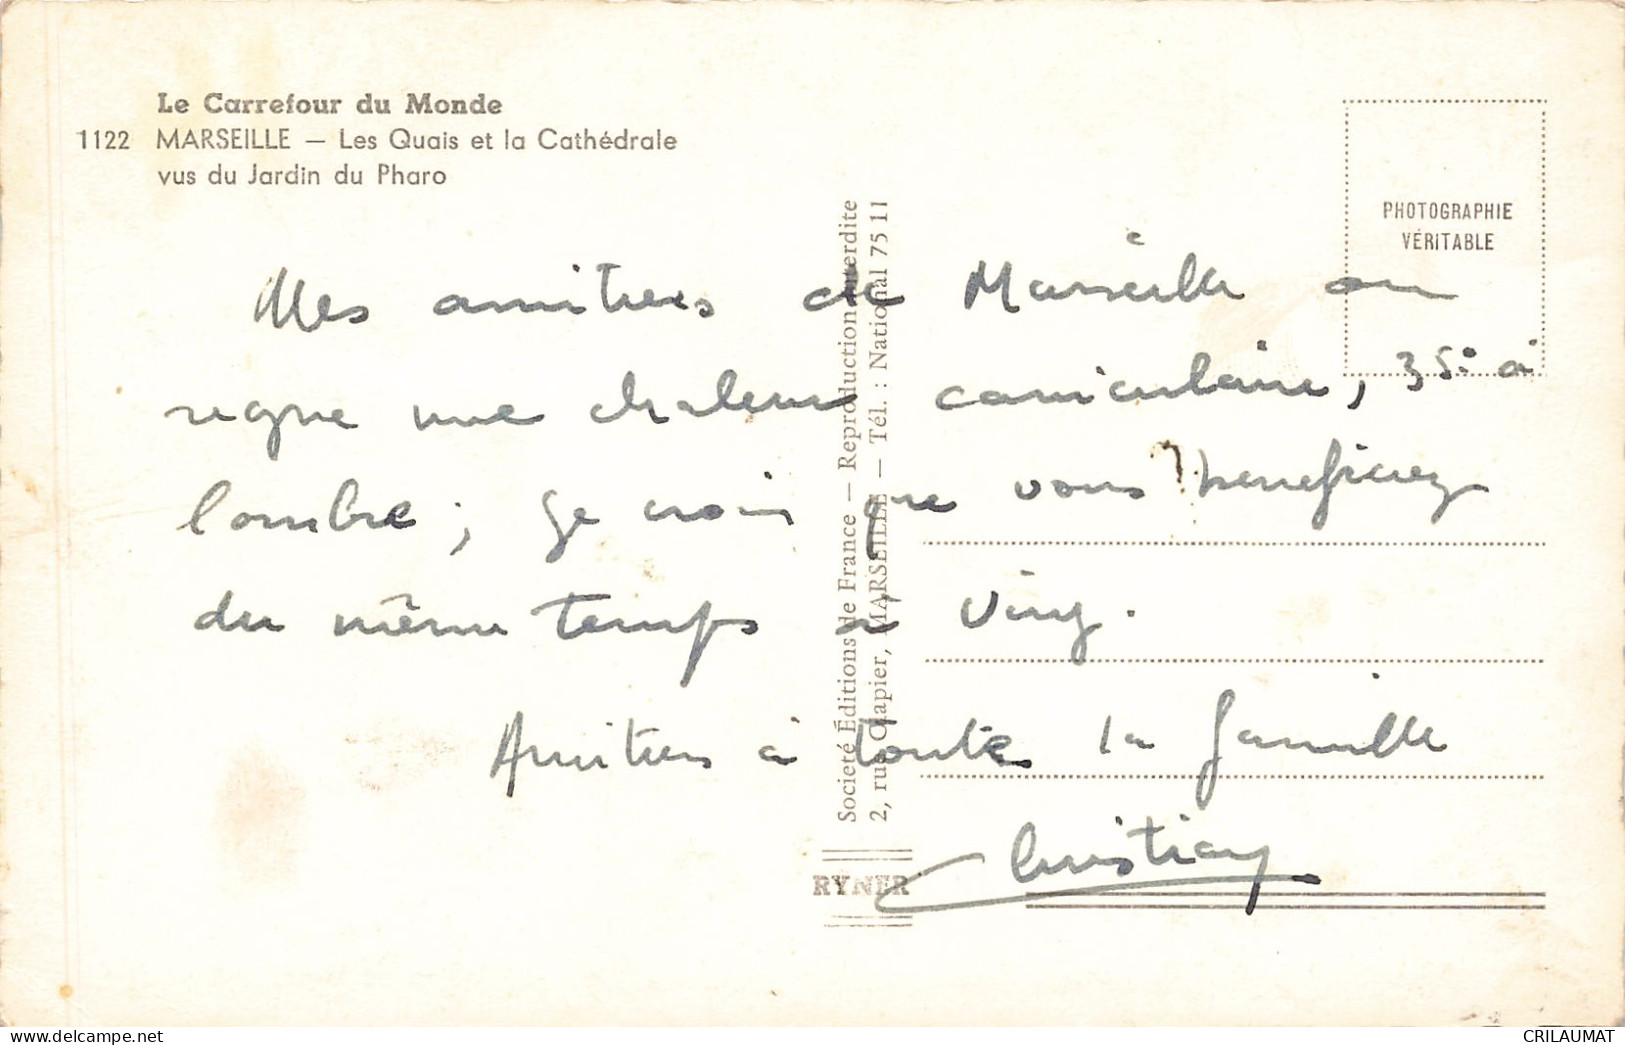 Le Carrefour du Monde
1122 MARSEILLE — Les Quais et la Cathédrale
vus du Jardin du Pharo
PHOTOGRAPHIE
VÉRITABLE
Société Éditions de France — Reproduction interdite
2, rue Clapier, MARSEILLE — Tél. : National 75 11
RYNER
Mes amitiees de Marseille ou
regne une chaleur caniculaire, 35° à
l'ombre ; Je crois que vous beneficiez
du même temps à
Amities à toute la famille
Christian
CRILAUMAT